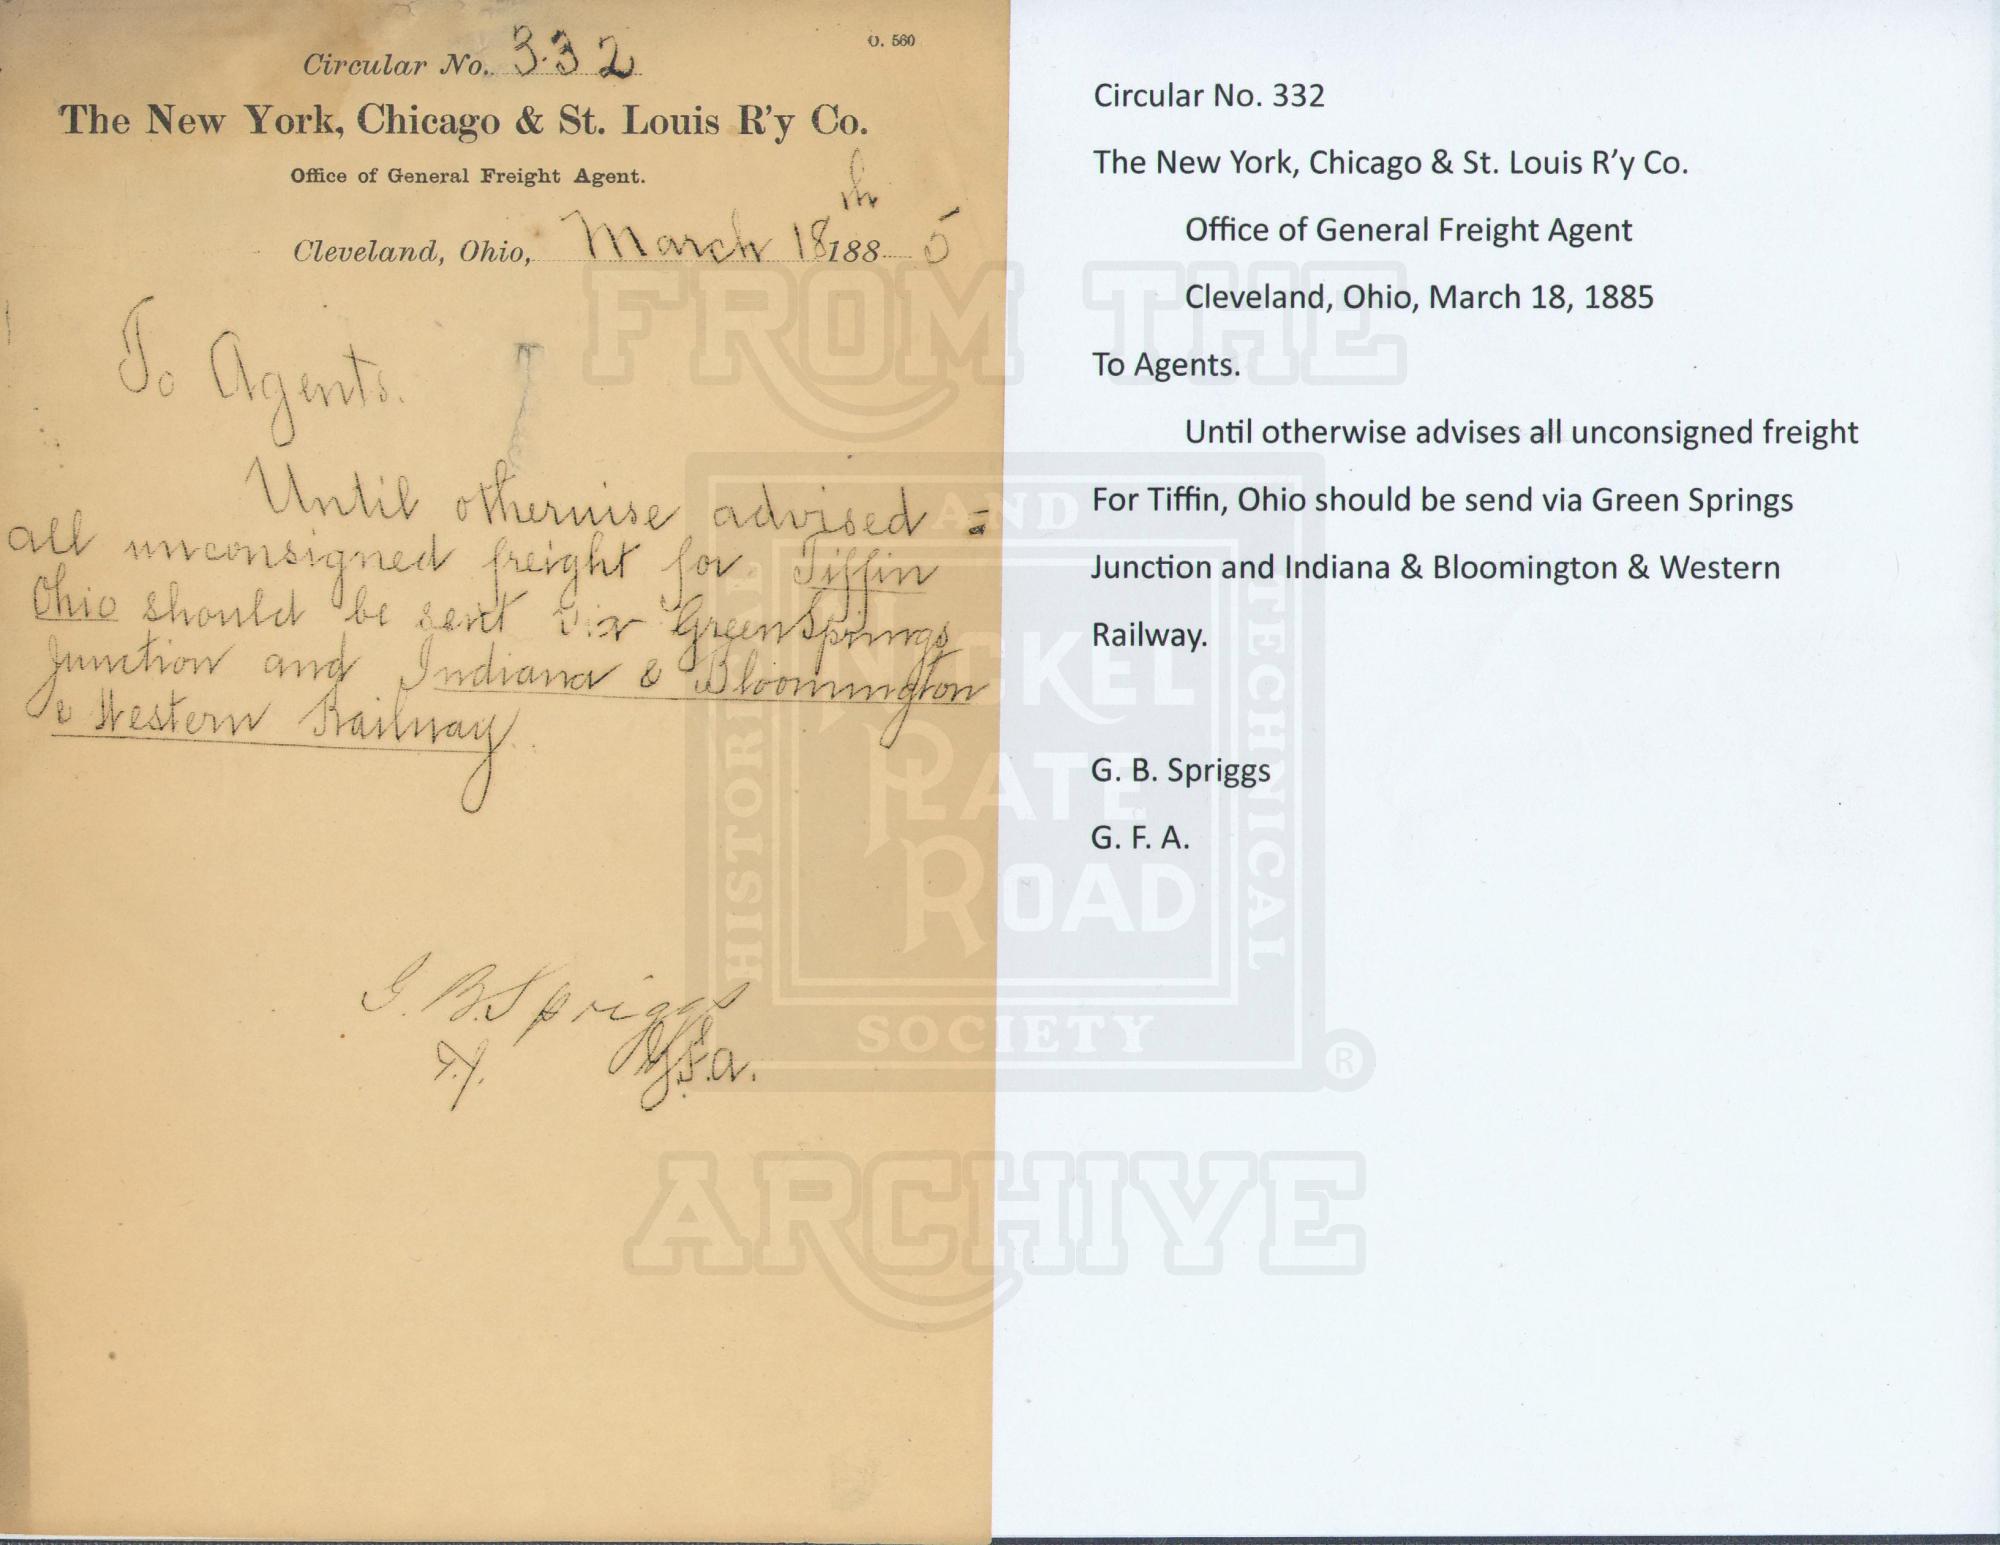 O. 560
Circular No. 332
The New York, Chicago & St. Louis R'y Co.
Office of General Freight Agent.
Cleveland, Ohio, March 18th 1885
To Agents.
Until otherwise advised =
all unconsigned freight for Tiffin
Ohio should be sent via Green Springs
Junction and Indiana & Bloomington
& Western Railway.
G. B. Spriggs
G.F.A.
Circular No. 332
The New York, Chicago & St. Louis R’y Co.
Office of General Freight Agent
Cleveland, Ohio, March 18, 1885
To Agents.
Until otherwise advises all unconsigned freight
For Tiffin, Ohio should be send via Green Springs
Junction and Indiana & Bloomington & Western
Railway.
G. B. Spriggs
G. F. A.
FROM THE
HISTORICAL AND TECHNICAL
NICKEL
PLATE
ROAD
SOCIETY
®
ARCHIVE